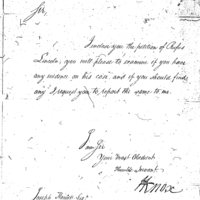 Sir,
I inclose you the petition of Rufus
Lincoln, you will please to examine if you have
any evidence on his case, and if you should find
any I request you to report the same to me.
I am Sir
Your most Obedient
Humble Servant
HKnox
Joseph Howell Esqr